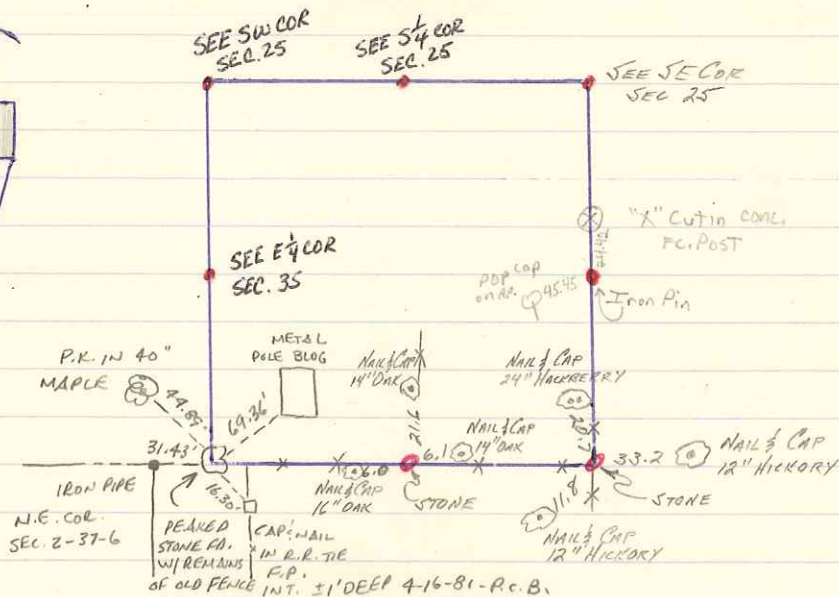 SEE SW COR
SEC. 25
SEE S 1/4 COR
SEC. 25
SEE SE COR
SEC 25
"X" Cut in conc.
FC. POST
24.42
SEE E 1/4 COR
SEC. 35
POP CAP
ON
45.45
Iron Pin
P.K. IN 40"
MAPLE
44.89'
METAL
POLE BLDG
69.36'
NAIL & CAP
14" OAK
21.6
NAIL & CAP
24" HACKBERRY
20.7
31.43'
6.0
6.1
NAIL & CAP
14" OAK
33.2
NAIL & CAP
12" HICKORY
IRON PIPE
16.30
NAIL & CAP
16" OAK
STONE
11.8
STONE
N.E. COR.
SEC. 2-37-6
PEAKED
STONE FD.
W/ REMAINS
OF OLD FENCE
CAP & NAIL
IN R.R. TIE
F.P.
INT. ±1' DEEP 4-16-81-P.C.B.
NAIL & CAP
12" HICKORY